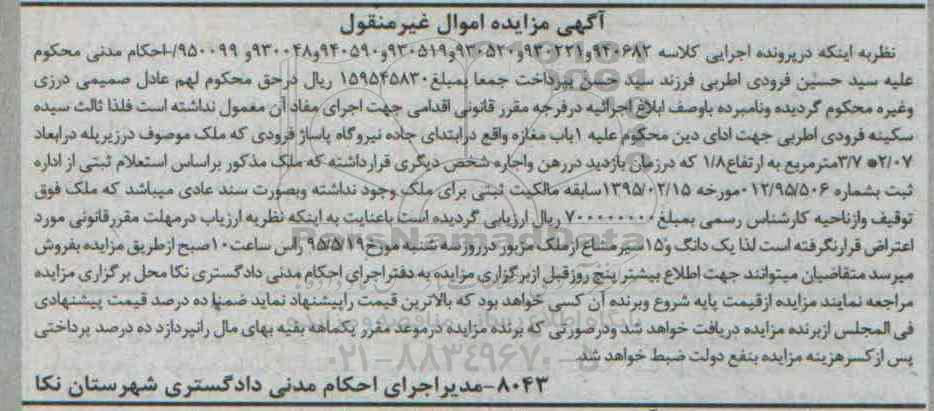 آگهی مزایده اموال غیرمنقول
نظربه اینکه درپرونده اجرایی کلاسه ۹۴۰۶۸۲و۹۳۰۲۲۱و۹۳۰۵۲۰و۹۳۰۵۱۹و۹۴۰۵۹۰و۹۳۰۰۴۸و ۹۵۰۰۹۹/-احکام مدنی محکوم
علیه سید حسین فرودی اطربی فرزند سید حسن بپرداخت جمعا بمبلغ۱۵۹۵۴۵۸۳۰ ریال درحق محکوم لهم عادل صمیمی درزی
وغیره محکوم گردیده ونامبرده باوصف ابلاغ اجرائیه درفرجه مقرر قانونی اقدامی جهت اجرای مفاد آن معمول نداشته است فلذا ثالث سیده
سکینه فرودی اطربی جهت ادای دین محکوم علیه ۱باب مغازه واقع درابتدای جاده نیروگاه پاساژ فرودی که ملک موصوف درزیرپله درابعاد
۲/۰۷*۳/۷مترمربع به ارتفاع۱/۸ که درزمان بازدید دررهن واجاره شخص دیگری قرارداشته که ملک مذکور براساس استعلام ثبتی از اداره
ثبت بشماره ۰۱۲/۹۵/۵۰۶مورخه ۱۳۹۵/۰۲/۱۵سابقه مالکیت ثبتی برای ملک وجود نداشته وبصورت سند عادی میباشد که ملک فوق
توقیف وازناحیه کارشناس رسمی بمبلغ۷۰۰۰۰۰۰۰۰ ریال ارزیابی گردیده است باعنایت به اینکه نظریه ارزیاب درمهلت مقررقانونی مورد
اعتراض قرارنگرفته است لذا یک دانگ و۱۵سیر مشاع ازملک مزبور درروزسه شنبه مورخ۹۵/۵/۱۹ راس ساعت۱۰صبح ازطریق مزایده بفروش
میرسد متقاضیان میتوانند جهت اطلاع بیشتر پنج روزقبل ازبرگزاری مزایده به دفتراجرای احکام مدنی دادگستری نکا محل برگزاری مزایده
مراجعه نمایند مزایده ازقیمت پایه شروع وبرنده آن کسی خواهد بود که بالاترین قیمت راپیشنهاد نماید ضمنا ده درصد قیمت پیشنهادی
فی المجلس ازبرنده مزایده دریافت خواهد شد ودرصورتی که برنده مزایده درموعد مقرر یکماهه بقیه بهای مال رانپردازد ده درصد پرداختی
پس ازکسرهزینه مزایده بنفع دولت ضبط خواهد شد.
۸۰۴۳-مدیراجرای احکام مدنی دادگستری شهرستان نکا
ParsNamadData
۰۲۱-۸۸۳۴۹۶۷۰